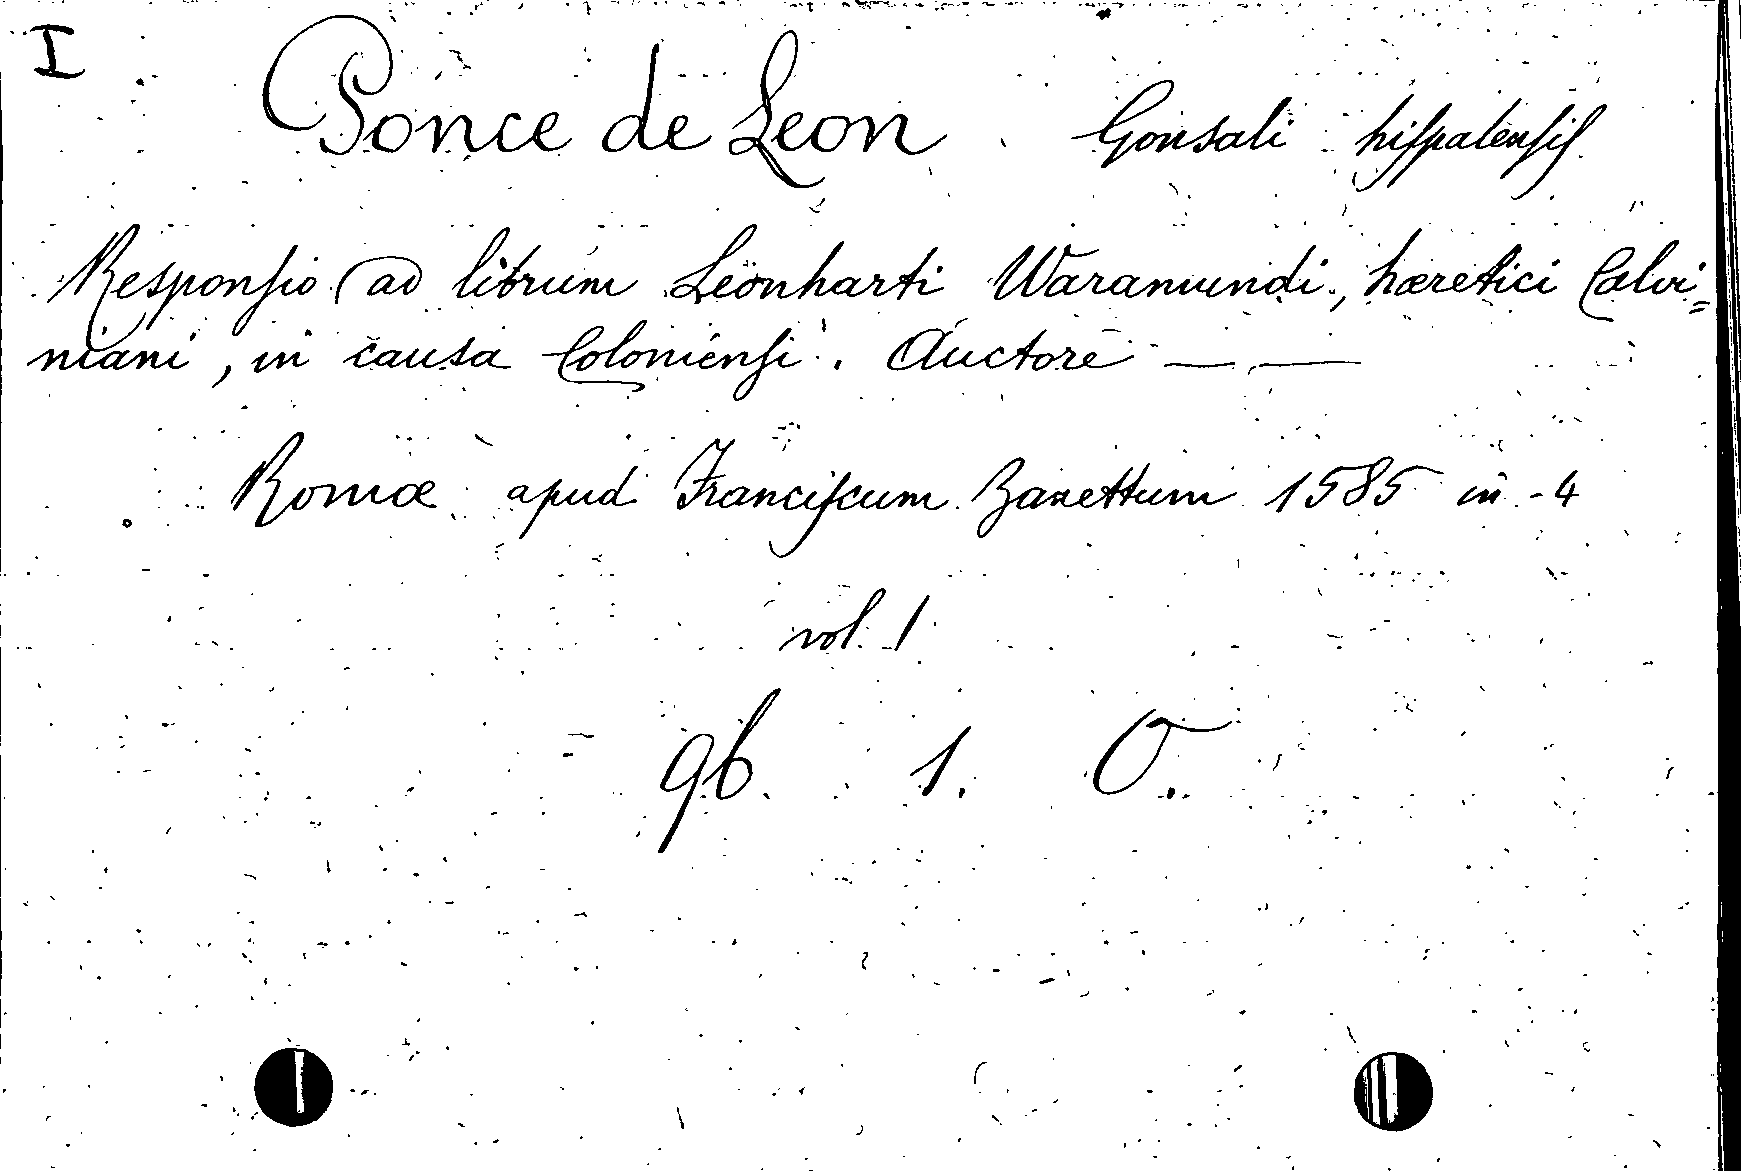 I
Ponce de Leon Gonsali hiſpalenſiſ
Responſio ad librum Leonharti Waramundi, hæretici Calvi=
niani, in causa Colonienſi. Auctore — —
Romæ apud Franciſcum Zanettum 1585 in-4
vol. 1
9b. 1. O.